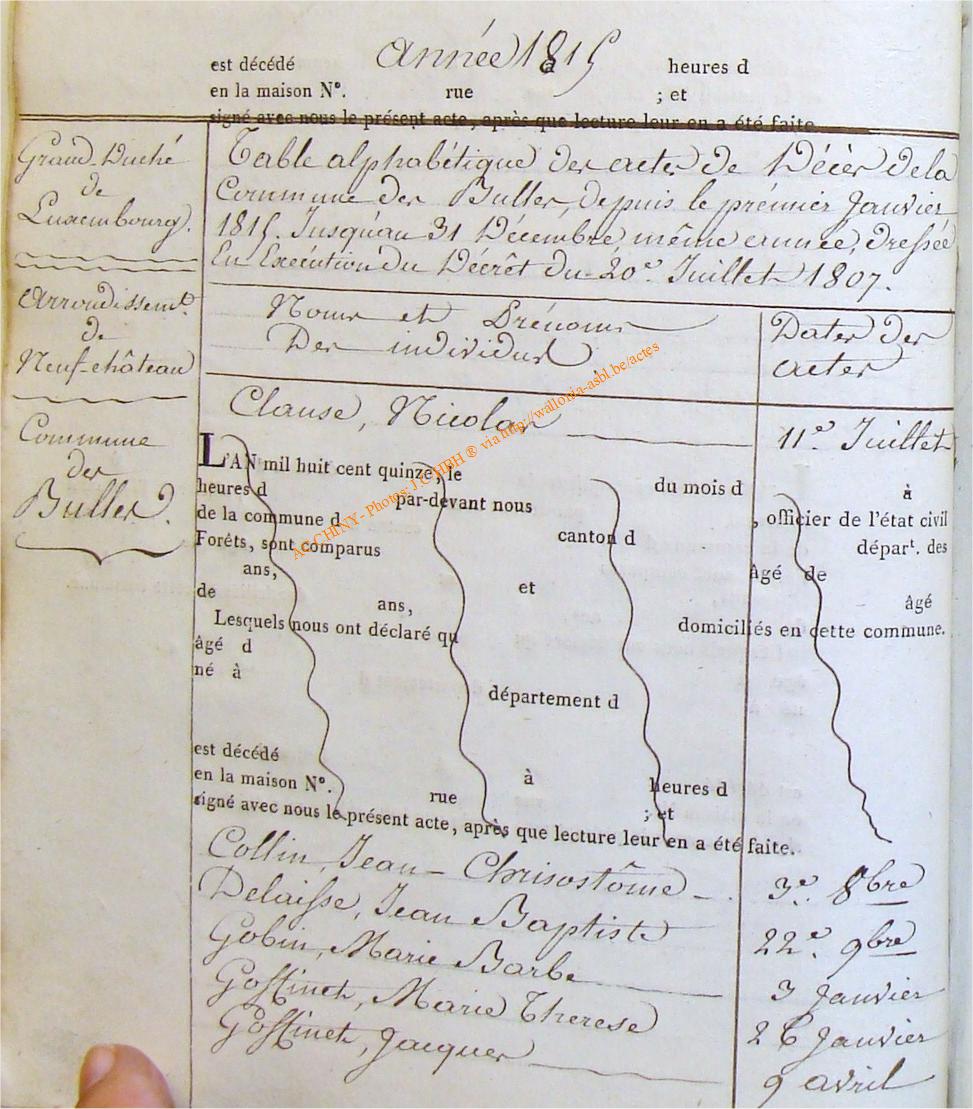 Année 1815
est décédé à heures d
en la maison N°. rue ; et
signé avec nous le présent acte, après que lecture leur en a été faite.
Grand-Duché
de
Luxembourg.
Arrondissemt.
de
Neuf-château
Commune
des
Bulles.
Table alphabétique des actes de Décès de la
Commune des Bulles, depuis le prémier Janvier
1815. Jusqu'au 31 Décembre, même année, dressée
En Exécution du Décrêt du 20e Juillet 1807.
Noms et Prénoms
Des individus
Dates des
actes
Clause, Nicolas
11e Juillet
L'AN mil huit cent quinze, le du mois d à
heures d par-devant nous , officier de l'état civil
de la commune d canton d départ. des
Forêts, sont comparus âgé de
ans, et âgé
de ans, domiciliés en cette commune.
Lesquels nous ont déclaré qu
âgé d
né à département d
est décédé à heures d
en la maison N°. rue ; et
signé avec nous le présent acte, après que lecture leur en a été faite.
Collin, Jean-Chrisostôme 3e. 8bre
Delaisse, Jean Baptiste 22e. 9bre
Gobin, Marie Barbe 3 Janvier
Gossinet, Marie Therese 26 Janvier
Gossinet, Jacques 9 avril
AC CHINY - Photos: J.C HBH ® via http://wallonia-asbl.be/actes